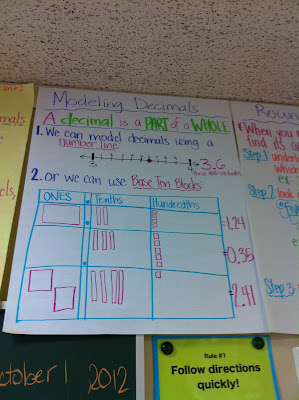 Modeling Decimals
A decimal is a PART of a WHOLE
1. We can model decimals using a
number line
3
3.6
three and six tenths
2. or we can use Base Ten Blocks
ONES . Tenths Hundredths
=1.24
=0.35
=2.41
Roun
When you
find its
Step 1 underli
Step 2 look
Step 3
ctober 1 2012
Rule #1
Follow directions
quickly!